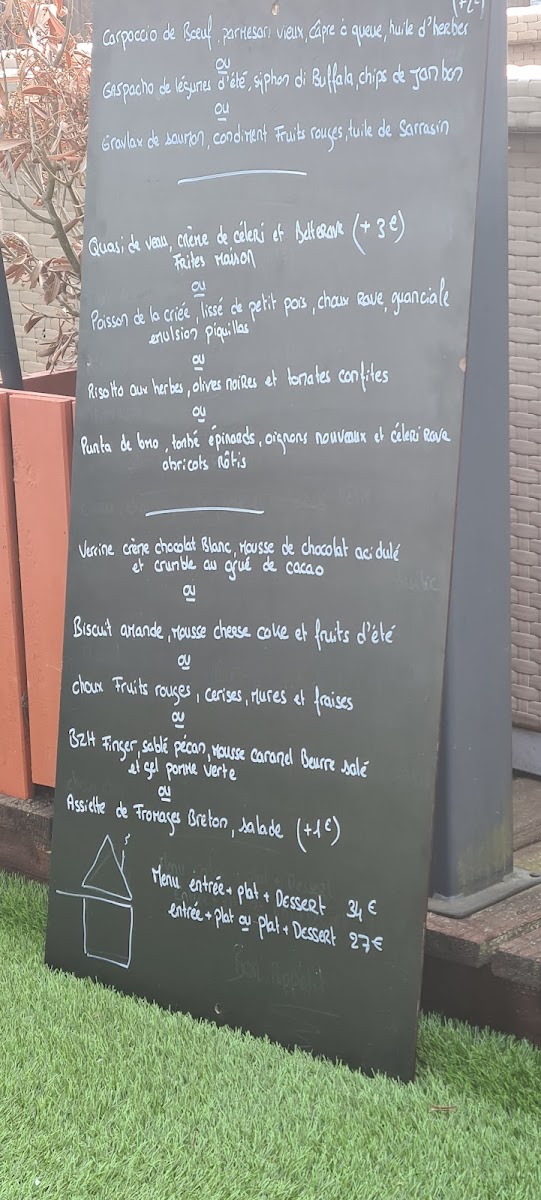 (+2€)
Carpaccio de Bœuf, parmesan vieux, câpre à queue, huile d'herbes
ou
Gaspacho de légumes d'été, siphon di Buffala, chips de Jambon
ou
Gravlax de saumon, condiment Fruits rouges, tuile de Sarrasin
Quasi de veau, crème de céleri et Betterave (+3€)
Frites Maison
ou
Poisson de la criée, lissé de petit pois, choux Rave, guanciale
emulsion piquillos
ou
Risotto aux herbes, olives noires et tomates confites
ou
Punta de bno, tombé épinards, oignons nouveaux et céleri Rave
abricots Rôtis
Verrine crème chocolat Blanc, Mousse de chocolat acidulé
et crumble au grué de cacao
ou
Biscuit amande, Mousse cheese cake et fruits d'été
ou
choux Fruits rouges, cerises, Mures et fraises
ou
BZH Finger, sablé pécan, Mousse caramel Beurre salé
et gel pomme verte
ou
Assiette de Fromages Breton, salade (+1€)
Menu entrée + plat + Dessert 34€
entrée + plat ou plat + Dessert 27€